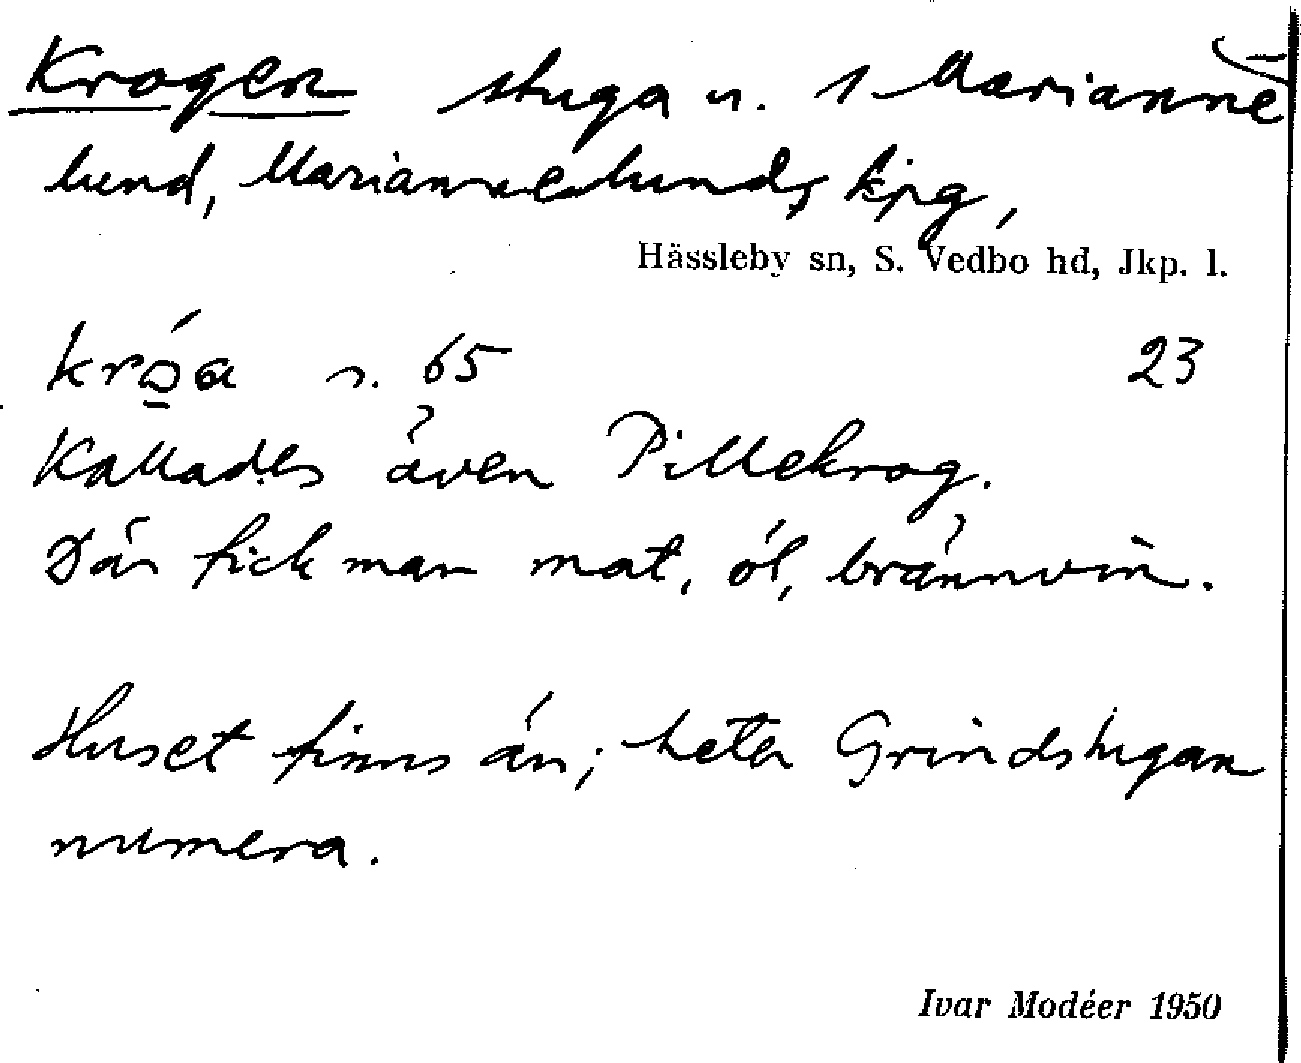 Krogen stuga n. 1 Marianne
lund, Mariannelunds kpg,
Hässleby sn, S. Vedbo hd, Jkp. l.
króa s. 65 23
Kallades även Pillekrog.
Där fick man mat, öl, brännvin.
Huset finns än; heter Grindstugan
numera.
Ivar Modéer 1950